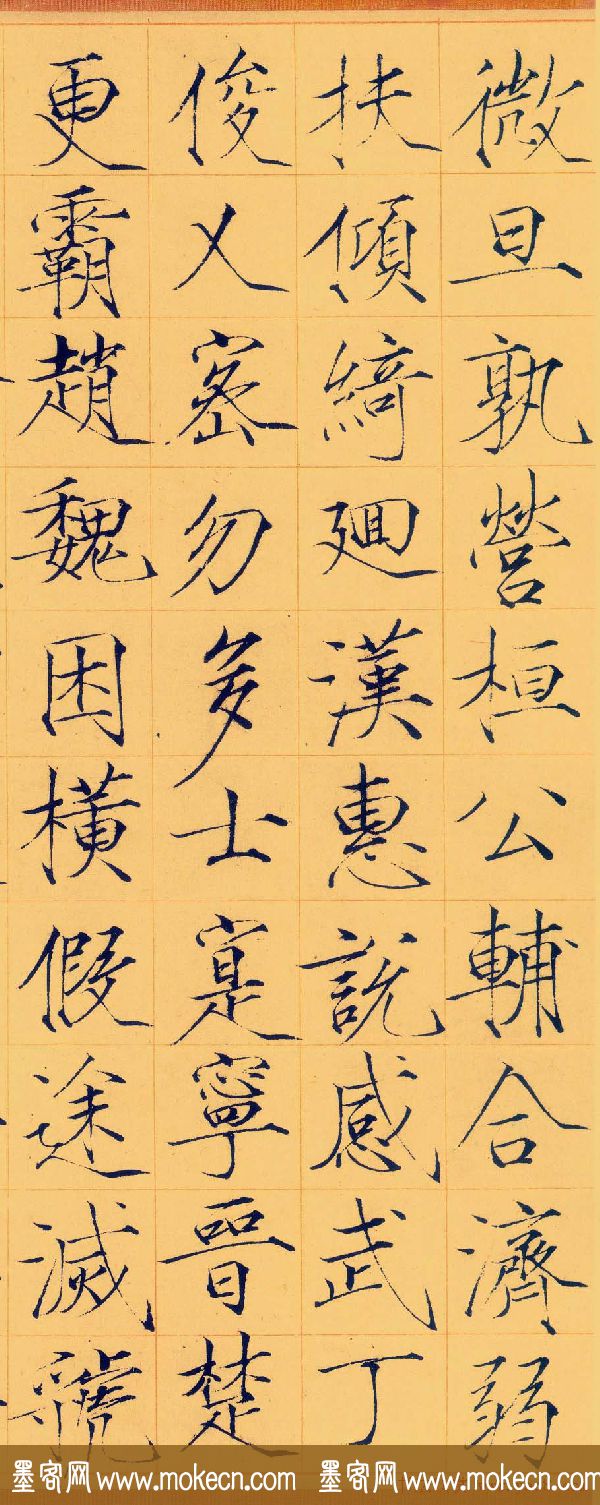 微旦孰營桓公輔合濟弱
扶傾綺迴漢惠說感武丁
俊乂密勿多士寔寧晉楚
更霸趙魏困橫假途滅虢
墨客网 www.mokecn.com 墨客网 www.mokecn.com